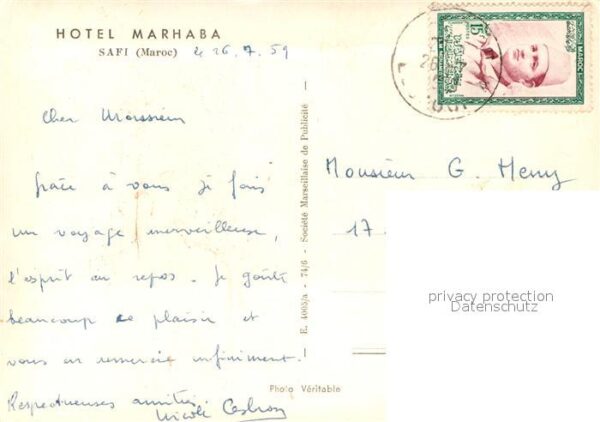 HOTEL MARHABA
SAFI (Maroc) le 26.7.59
Cher Monsieur
grâce à vous je fais
un voyage merveilleux,
l'esprit en repos. Je goûte
beaucoup ce plaisir et
vous en remercie infiniment.
Respectueuses amitiés.
Nicole
Monsieur G. Meny
17.
E. 4005/a - 74/6 - Société Marseillaise de Publicité
Photo Véritable
15
MAROC
privacy protection
Datenschutz